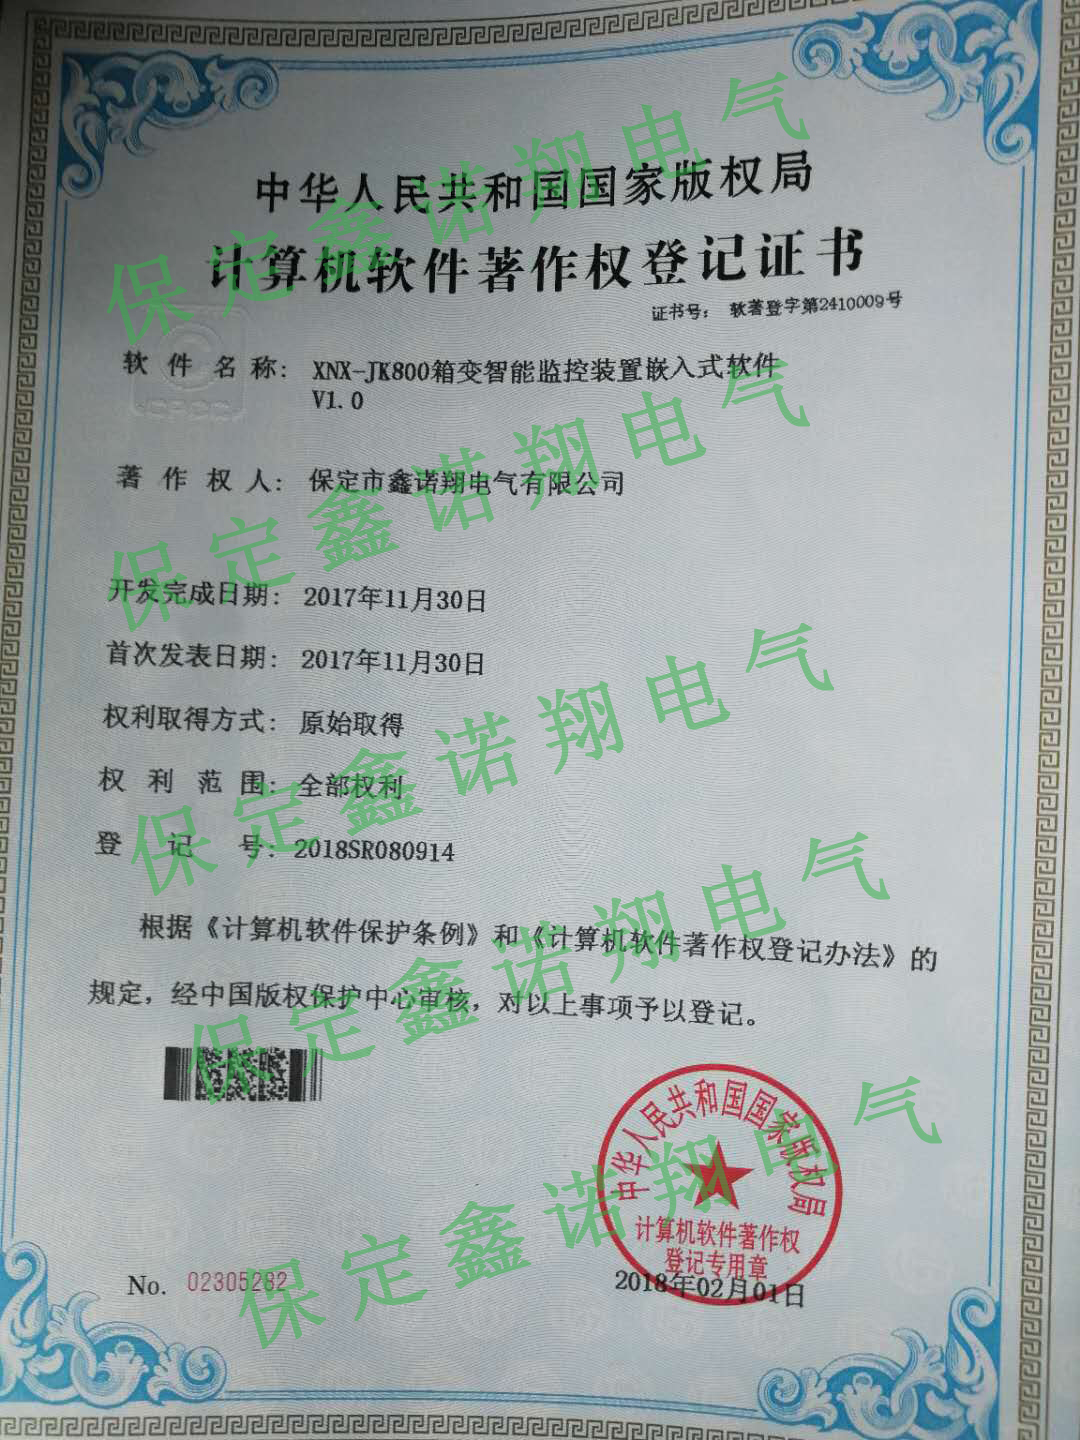 中华人民共和国国家版权局
计算机软件著作权登记证书
证书号： 软著登字第2410009号
软件名称： XNX-JK800箱变智能监控装置嵌入式软件
V1.0
CPCC
著作权人： 保定市鑫诺翔电气有限公司
开发完成日期： 2017年11月30日
首次发表日期： 2017年11月30日
权利取得方式： 原始取得
权利范围： 全部权利
登记号： 2018SR080914
根据《计算机软件保护条例》和《计算机软件著作权登记办法》的
规定，经中国版权保护中心审核，对以上事项予以登记。
中华人民共和国国家版权局
计算机软件著作权
登记专用章
No. 02305282
2018年02月01日
保定鑫诺翔电气
保定鑫诺翔电气
保定鑫诺翔电气
保定鑫诺翔电气
保定鑫诺翔电气